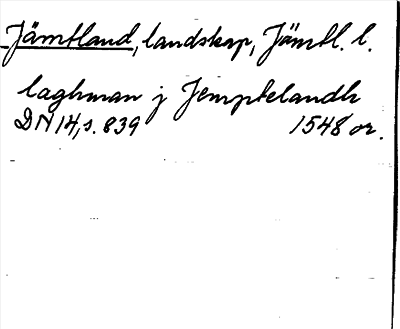 Jämtland, landskap, Jämtl. l.
laghman j Jemptelandh
DN 14, s. 839 1548 or.